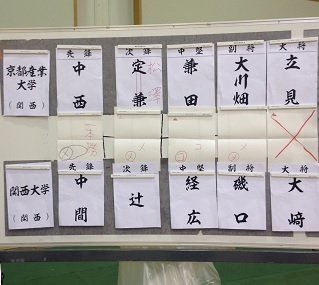 先鋒 次鋒 中堅 副将 大将
京都産業大学
(関西)
中西 定兼 兼田 大川畑 立見
松澤
先鋒 次鋒 中堅 副将 大将
関西大学
(関西)
中間 辻 経広 磯口 大﨑